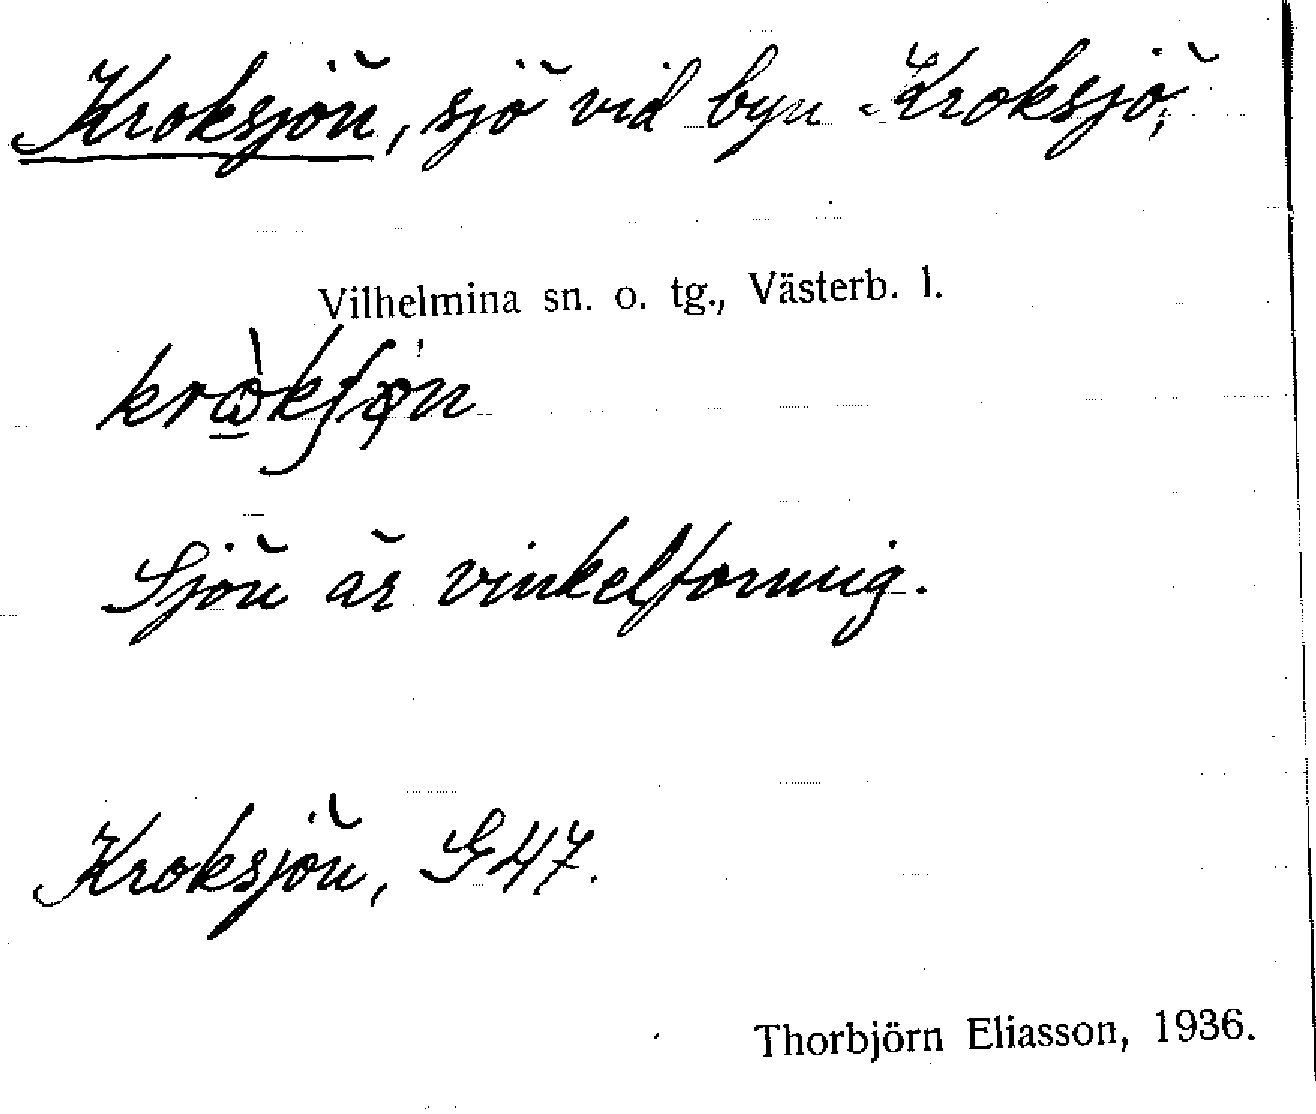 Kroksjön, sjö vid byn Kroksjö,
Vilhelmina sn. o. tg., Västerb. l.
Sjön är vinkelformig.
Kroksjön, G47.
Thorbjörn Eliasson, 1936.